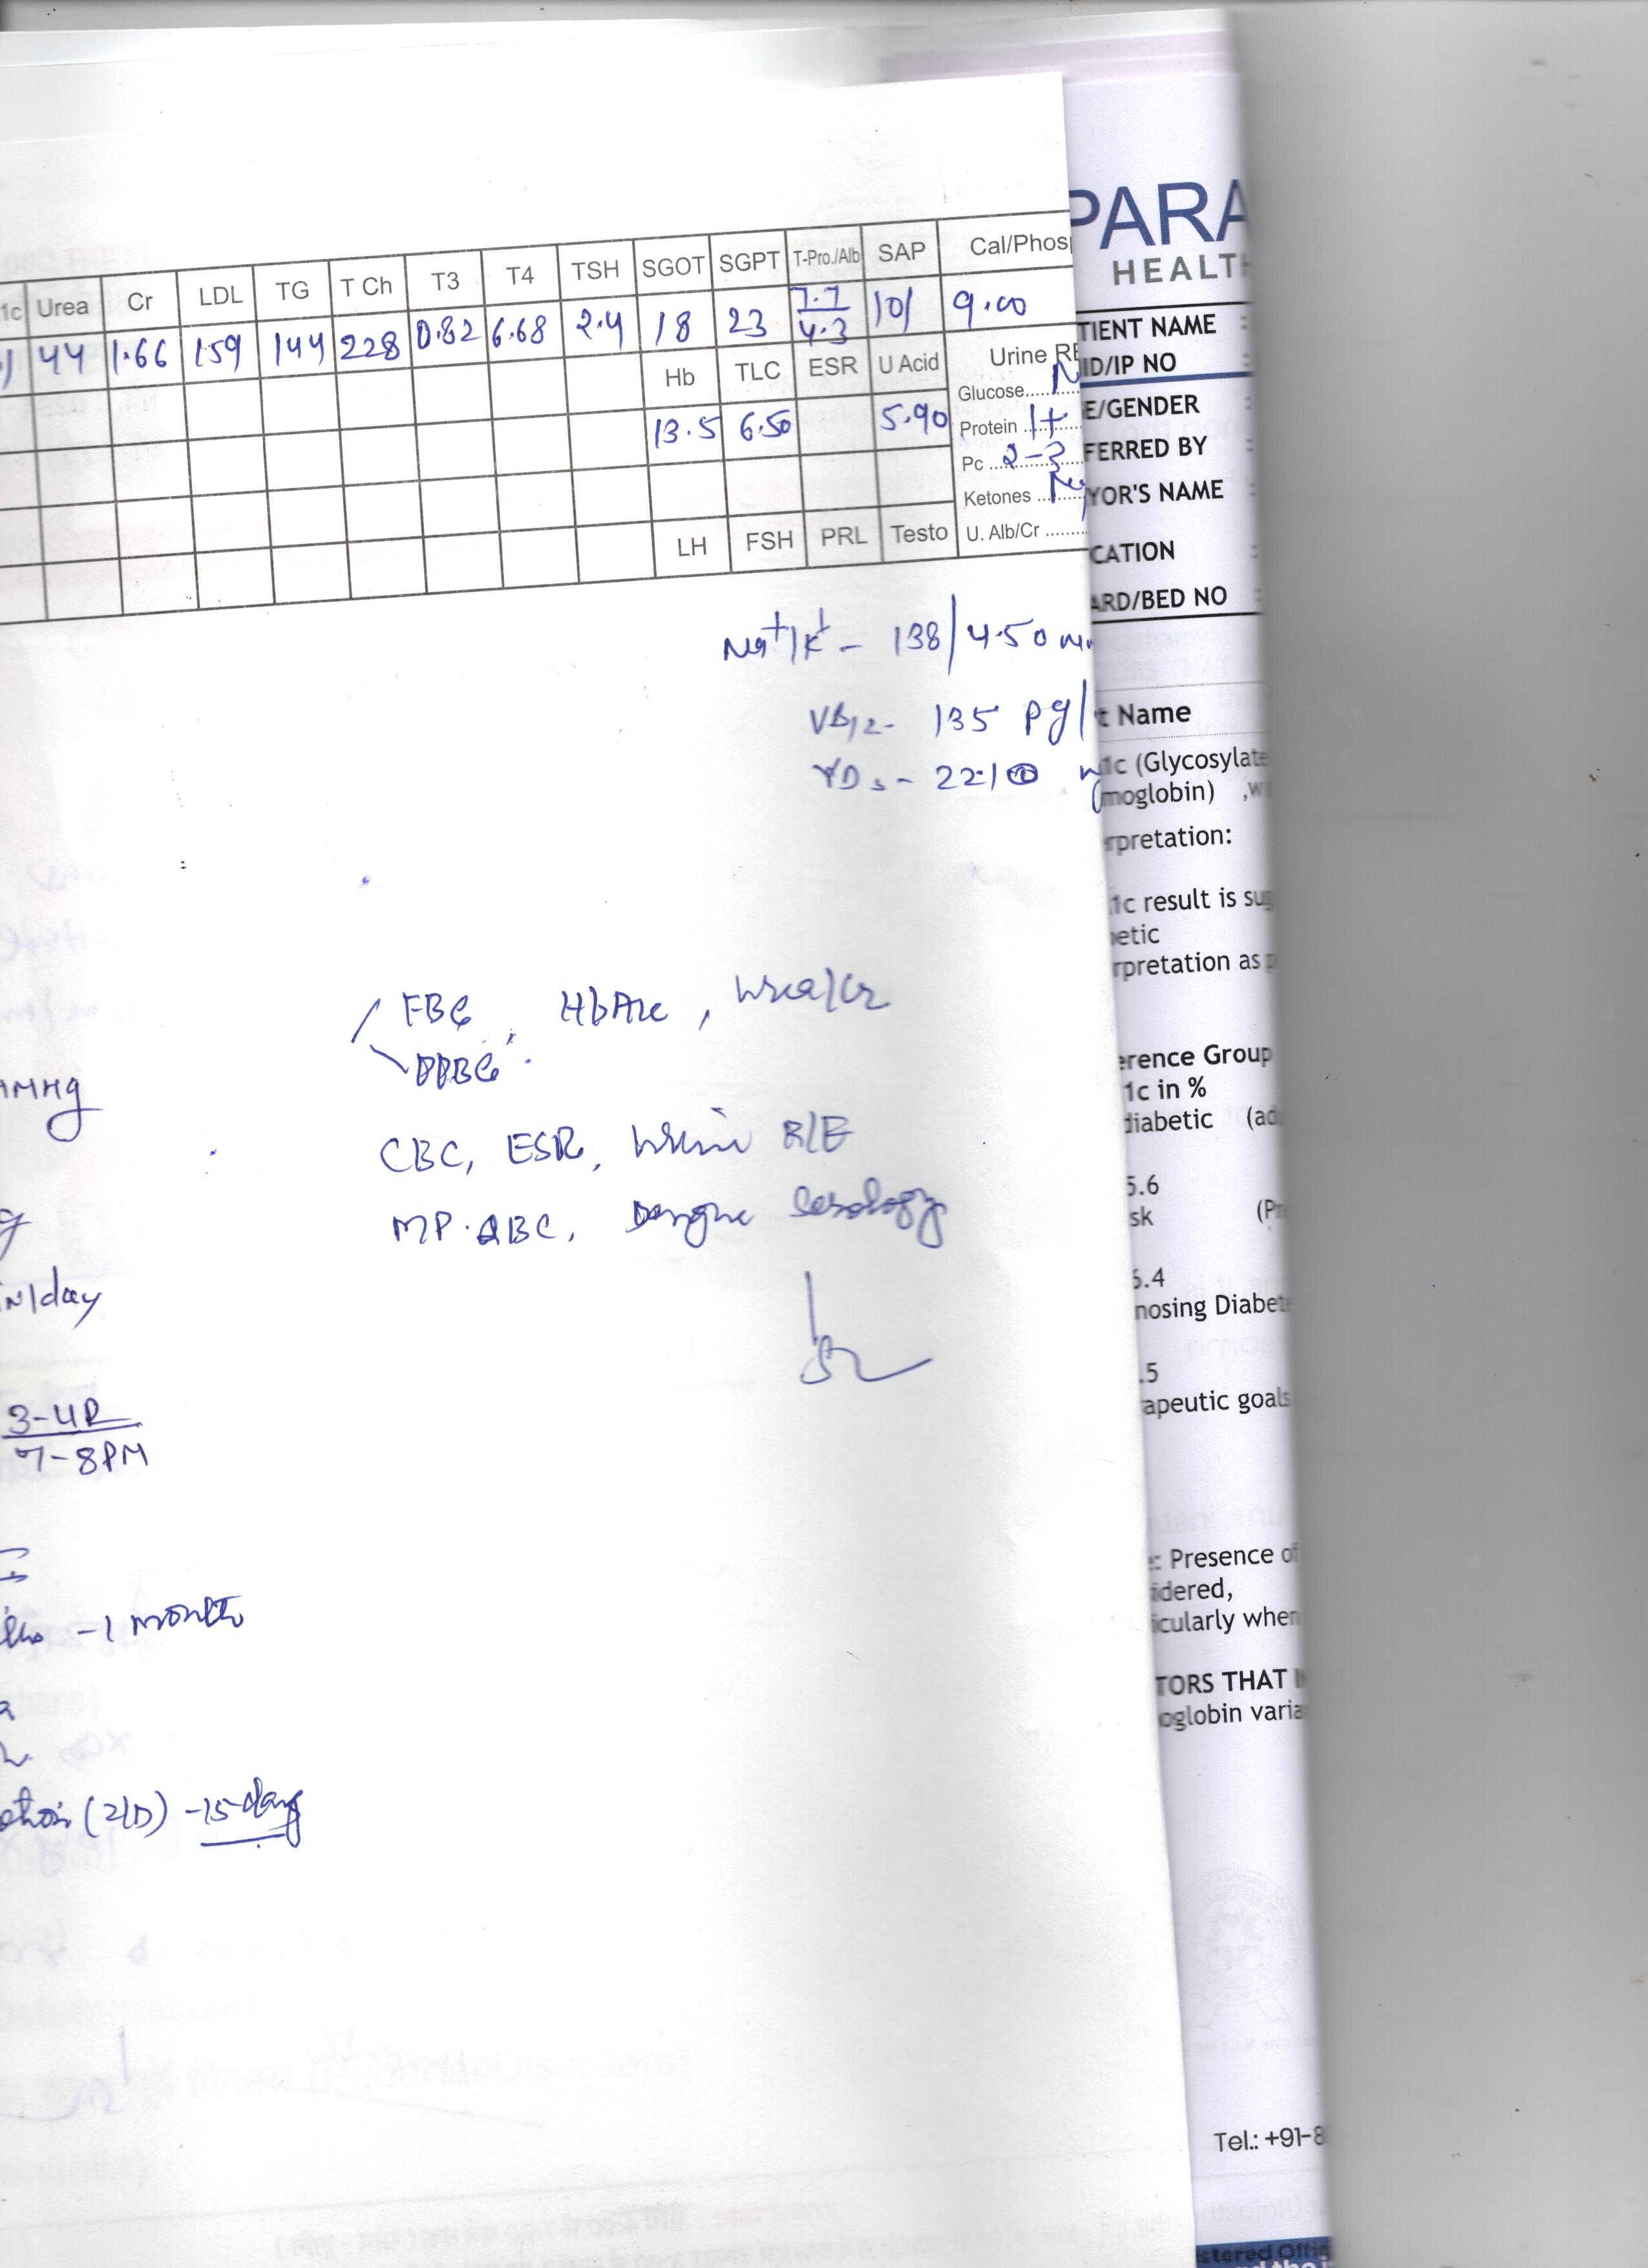 PARA
HEALTH
1c Urea Cr LDL TG T Ch T3 T4 TSH SGOT SGPT T-Pro./Alb SAP Cal/Phos
44 1.66 159 144 228 0.82 6.68 2.4 18 23 7.7/4.3 101 9.00
Hb TLC ESR U Acid Urine RE
13.5 6.50 5.90
Glucose........ N
Protein ........ 1+
Pc ........ 2-3
Ketones ........
LH FSH PRL Testo U. Alb/Cr ........
Na+/K+ - 138/4.50
VB12 - 135 pg/
VD3 - 22.10
FBG, HbA1c, Urea/Cr
PPBG
CBC, ESR, Urine R/E
MP.QBC, Dengue Serology
MMHg
N/day
3-4P
7-8PM
-1 month
(2/D) -15 day
TIENT NAME :
ID/IP NO :
E/GENDER :
FERRED BY :
YOR'S NAME :
CATION :
ARD/BED NO :
t Name
1c (Glycosylate
moglobin) ,W
rpretation:
1c result is sug
betic
rpretation as p
erence Group
1c in %
diabetic (ad
5.6
sk (Pr
6.4
nosing Diabet
.5
apeutic goals
: Presence of
idered,
icularly when
TORS THAT I
oglobin varia
Tel.: +91-8
stered Offi